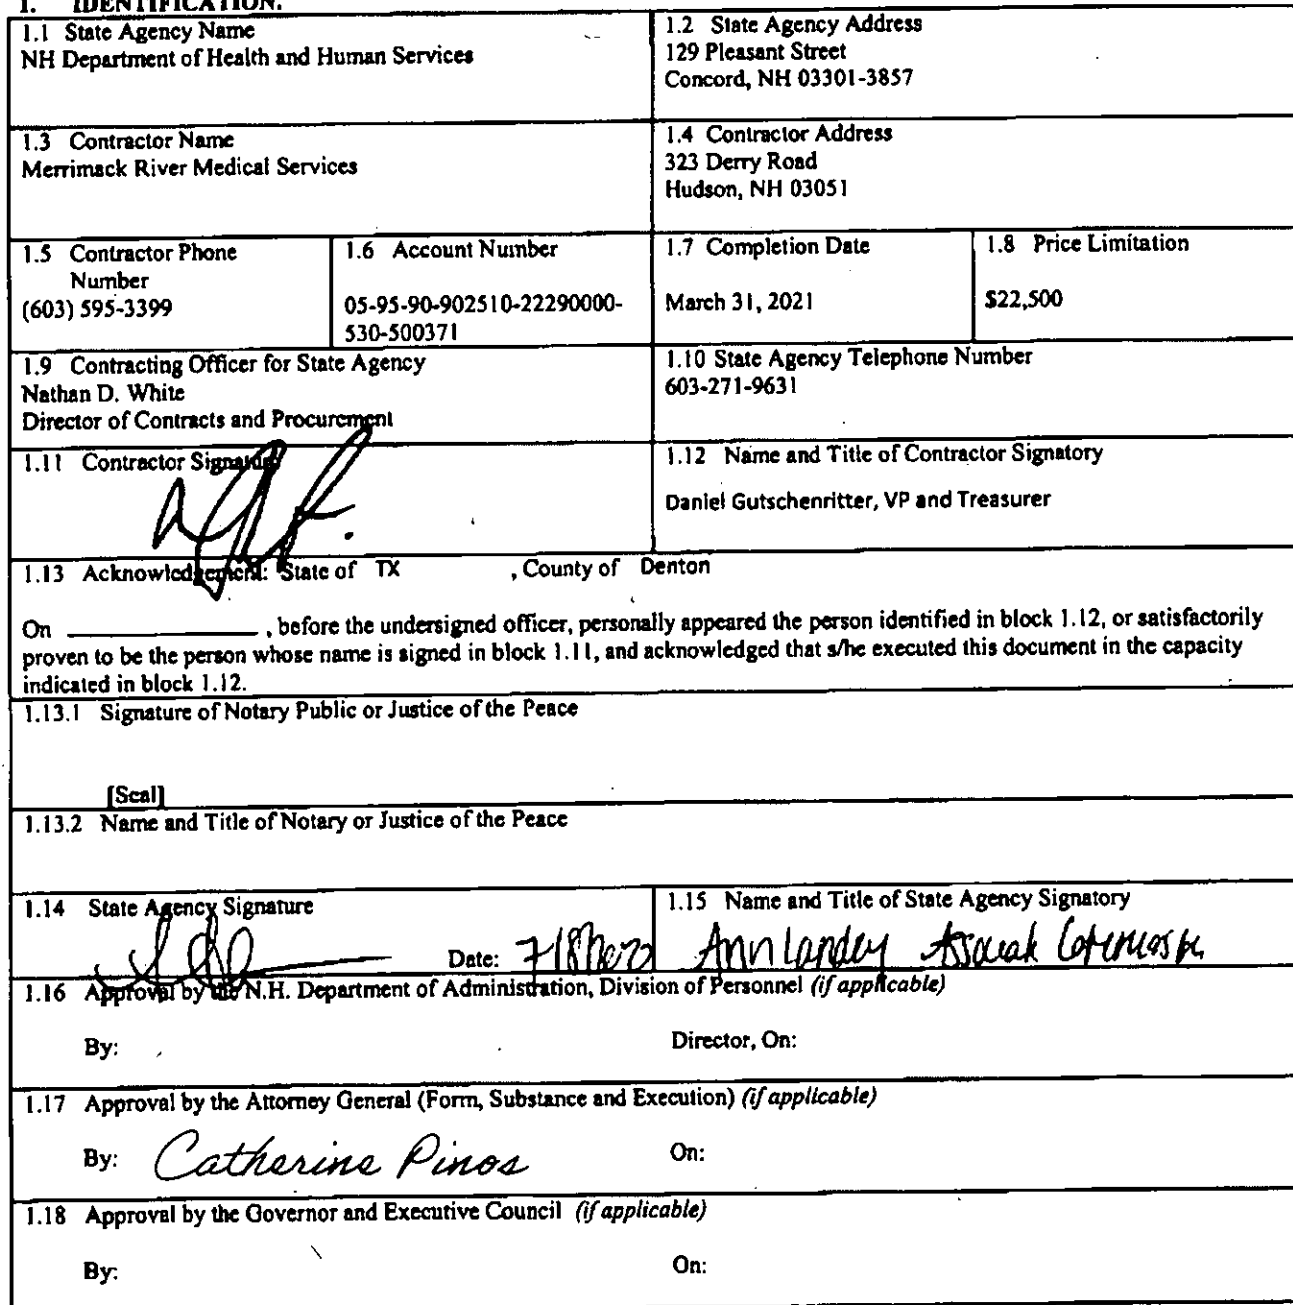 1. IDENTIFICATION.
1.1 State Agency Name
NH Department of Health and Human Services
1.2 State Agency Address
129 Pleasant Street
Concord, NH 03301-3857
1.3 Contractor Name
Merrimack River Medical Services
1.4 Contractor Address
323 Derry Road
Hudson, NH 03051
1.5 Contractor Phone
Number
(603) 595-3399
1.6 Account Number
05-95-90-902510-22290000-
530-500371
1.7 Completion Date
March 31, 2021
1.8 Price Limitation
$22,500
1.9 Contracting Officer for State Agency
Nathan D. White
Director of Contracts and Procurement
1.10 State Agency Telephone Number
603-271-9631
1.11 Contractor Signature
1.12 Name and Title of Contractor Signatory
Daniel Gutschenritter, VP and Treasurer
1.13 Acknowledgement: State of TX , County of Denton
On , before the undersigned officer, personally appeared the person identified in block 1.12, or satisfactorily
proven to be the person whose name is signed in block 1.11, and acknowledged that s/he executed this document in the capacity
indicated in block 1.12.
1.13.1 Signature of Notary Public or Justice of the Peace
[Seal]
1.13.2 Name and Title of Notary or Justice of the Peace
1.14 State Agency Signature
Date:
1.15 Name and Title of State Agency Signatory
Ann Landry
1.16 Approval by the N.H. Department of Administration, Division of Personnel (if applicable)
By: Director, On:
1.17 Approval by the Attorney General (Form, Substance and Execution) (if applicable)
By: Catherine Pinos On:
1.18 Approval by the Governor and Executive Council (if applicable)
By: On: